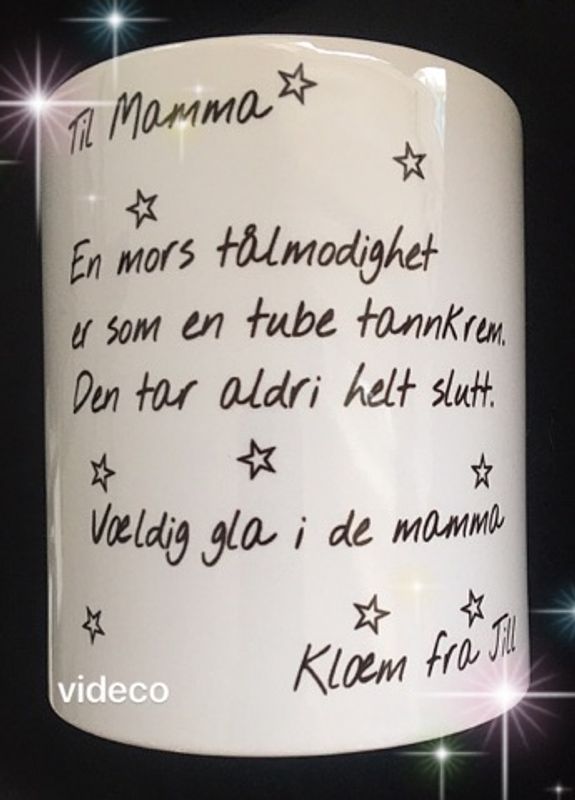 Til Mamma
En mors tålmodighet
er som en tube tannkrem.
Den tar aldri helt slutt.
Vældig gla i de mamma
Klæm fra Jill
videco